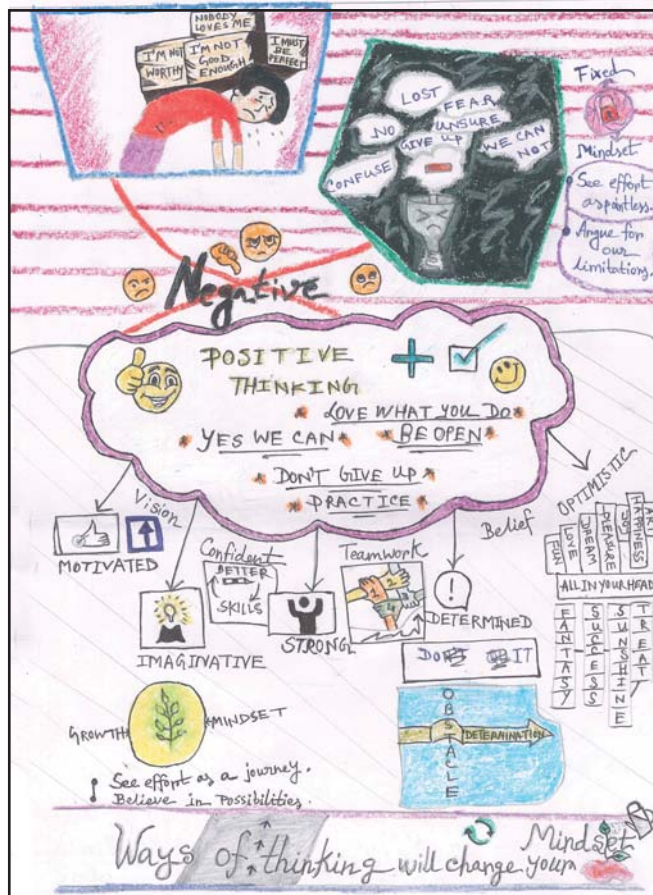 NOBODY
LOVES ME
I'M NOT
WORTHY
I'M NOT
GOOD
ENOUGH
I MUST
BE
PERFECT
LOST
FEAR
UNSURE
NO
GIVE UP
WE CAN
NOT
CONFUSE
Fixed
Mindset
See effort
as pointless.
Argue for
our
limitations.
Negative
POSITIVE
THINKING
LOVE WHAT YOU DO
YES WE CAN
BE OPEN
DON'T GIVE UP
PRACTICE
Vision
MOTIVATED
IMAGINATIVE
Confident
BETTER
SKILLS
STRONG
Teamwork
1
2
3
4
Belief
!
DETERMINED
DO IT
OBSTACLE
DETERMINATION
OPTIMISTIC
FUN
LOVE
DREAM
PLEASURE
JOY
HAPPINESS
ALL IN YOUR HEAD
FANTASY
SUCCESS
SUNSHINE
TREAT
GROWTH MINDSET
See effort as a journey.
Believe in Possibilities.
Ways of thinking will change your Mindset